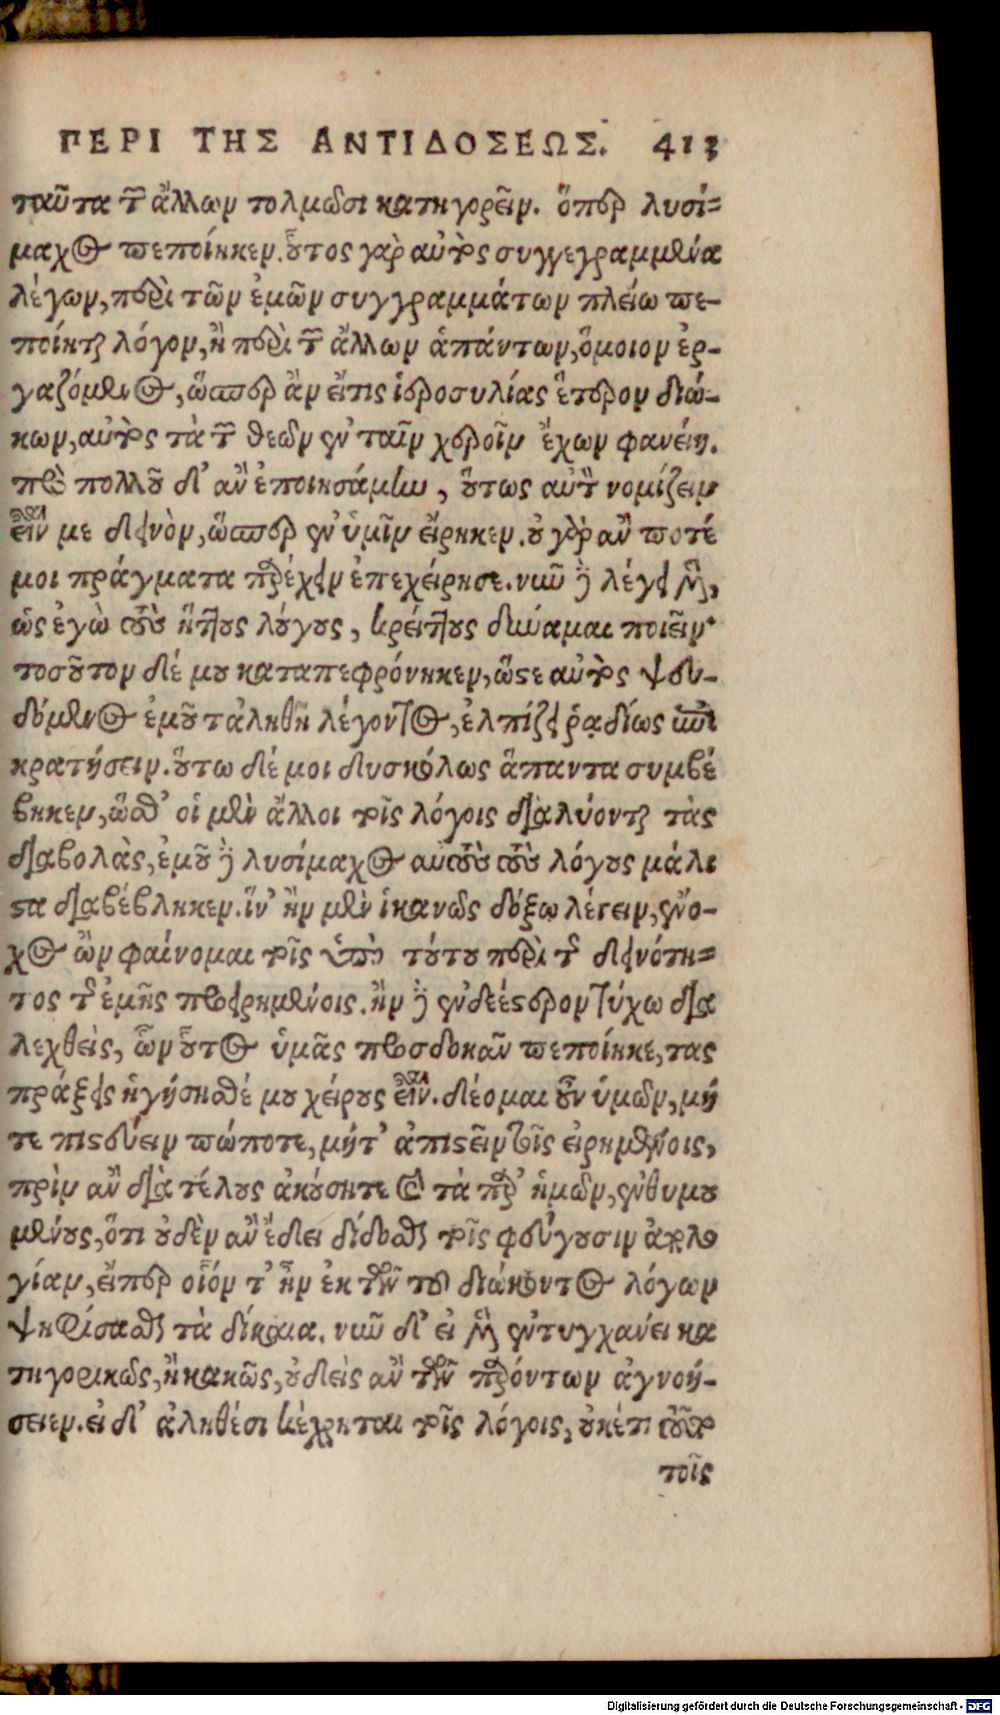 ΠΕΡΙ ΤΗΣ ΑΝΤΙΔΟΣΕΩΣ. 413
ταῦτα τῶν ἄλλων τολμῶσι κατηγορεῖν. ὅπερ λυσί=
μαχος πεποίηκεν. οὗτος γὰρ αὐτὸς συγγεγραμμένα
λέγων, περὶ τῶν ἐμῶν συγγραμμάτων πλείω πε-
ποίηται λόγον, ἢ περὶ τῶν ἄλλων ἁπάντων, ὅμοιον ἐρ-
γαζόμενος, ὥσπερ ἂν εἴτις ἱεροσυλίας ἕτερον διώ-
κων, αὐτὸς τὰ τῶν θεῶν ἐν ταῖν χεροῖν ἔχων φανείη.
πρὸ πολλοῦ δ' ἂν ἐποιησάμην, οὕτως αὐτὸν νομίζειν
εἶναι με δεινὸν, ὥσπερ ἐν ὑμῖν εἴρηκεν. οὐ γὰρ ἄν ποτέ
μοι πράγματα παρέχειν ἐπεχείρησε. νῦν δὲ λέγει μὲν,
ὡς ἐγὼ τοὺς ἥττους λόγους, κρείττους δύναμαι ποιεῖν·
τοσοῦτον δέ μου καταπεφρόνηκεν, ὥστε αὐτὸς ψευ-
δόμενος ἐμοῦ τἀληθῆ λέγοντος, ἐλπίζει ῥᾳδίως ἐπι
κρατήσειν. οὕτω δέ μοι δυσκόλως ἅπαντα συμβέ
βηκεν, ὥσθ' οἱ μὲν ἄλλοι τοῖς λόγοις διαλύονται τὰς
διαβολὰς, ἐμοῦ δὲ λυσίμαχος αὐτοὺς τοὺς λόγους μάλι
στα διαβέβληκεν. ἵν' ἢν μὲν ἱκανῶς δόξω λέγειν, ἔνο-
χος ὢν φαίνομαι τοῖς ὑπὸ τούτου περὶ τῆς δεινότη=
τος τῆς ἐμῆς προειρημένοις. ἢν δὲ ἐνδεέστερον τύχω δια
λεχθεὶς, ὧν οὗτος ὑμᾶς προσδοκᾶν πεποίηκε, τας
πράξεις ἡγήσησθέ μου χείρους εἶναι. δέομαι οὖν ὑμῶν, μή
τε πιστεύειν πώποτε, μήτ' ἀπιστεῖν τοῖς εἰρημένοις,
πρὶν ἂν διὰ τέλους ἀκούσητε καὶ τὰ παρ' ἡμῶν, ἐνθυμου
μένους, ὅτι οὐδὲν ἂν ἔδει δίδοσθαι τοῖς φεύγουσιν ἀπολο
γίαν, εἴπερ οἷόν τ' ἦν ἐκ τῶν τοῦ διώκοντος λόγων
ψηφίσασθαι τὰ δίκαια. νῦν δ' εἰ μὲν ἐντυγχανει κα
τηγορικῶς, ἢ κακῶς, οὐδεὶς ἂν τῶν παρόντων ἀγνοή-
σειεν. εἰ δ' ἀληθέσι κέχρηται τοῖς λόγοις, οὐκέτι τοῦτο
τοῖς
Digitalisierung gefördert durch die Deutsche Forschungsgemeinschaft - DFG